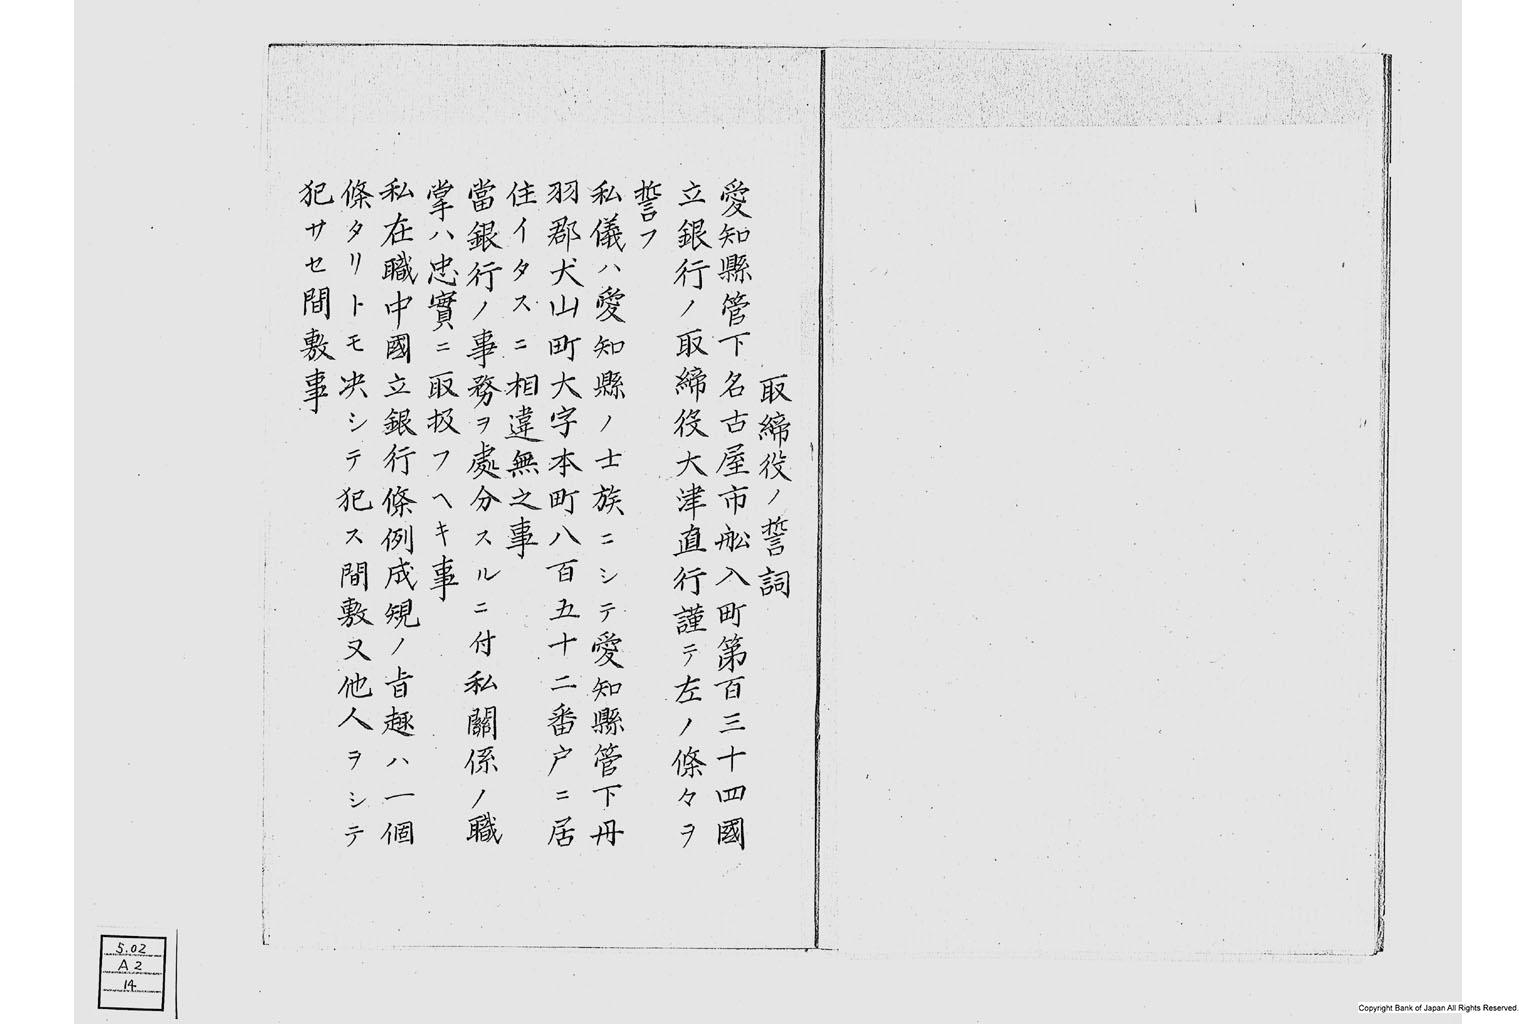 取締役ノ誓詞
愛知縣管下名古屋市舩入町第百三十四國
立銀行ノ取締役大津直行謹テ左ノ條々ヲ
誓フ
私儀ハ愛知縣ノ士族ニシテ愛知縣管下丹
羽郡犬山町大字本町八百五十二番戸ニ居
住イタスニ相違無之事
當銀行ノ事務ヲ處分スルニ付私關係ノ職
掌ハ忠實ニ取扱フヘキ事
私在職中國立銀行條例成規ノ旨趣ハ一個
條タリトモ决シテ犯ス間敷又他人ヲシテ
犯サセ間敷事
5.02
A2
14
Copyright Bank of Japan All Rights Reserved.